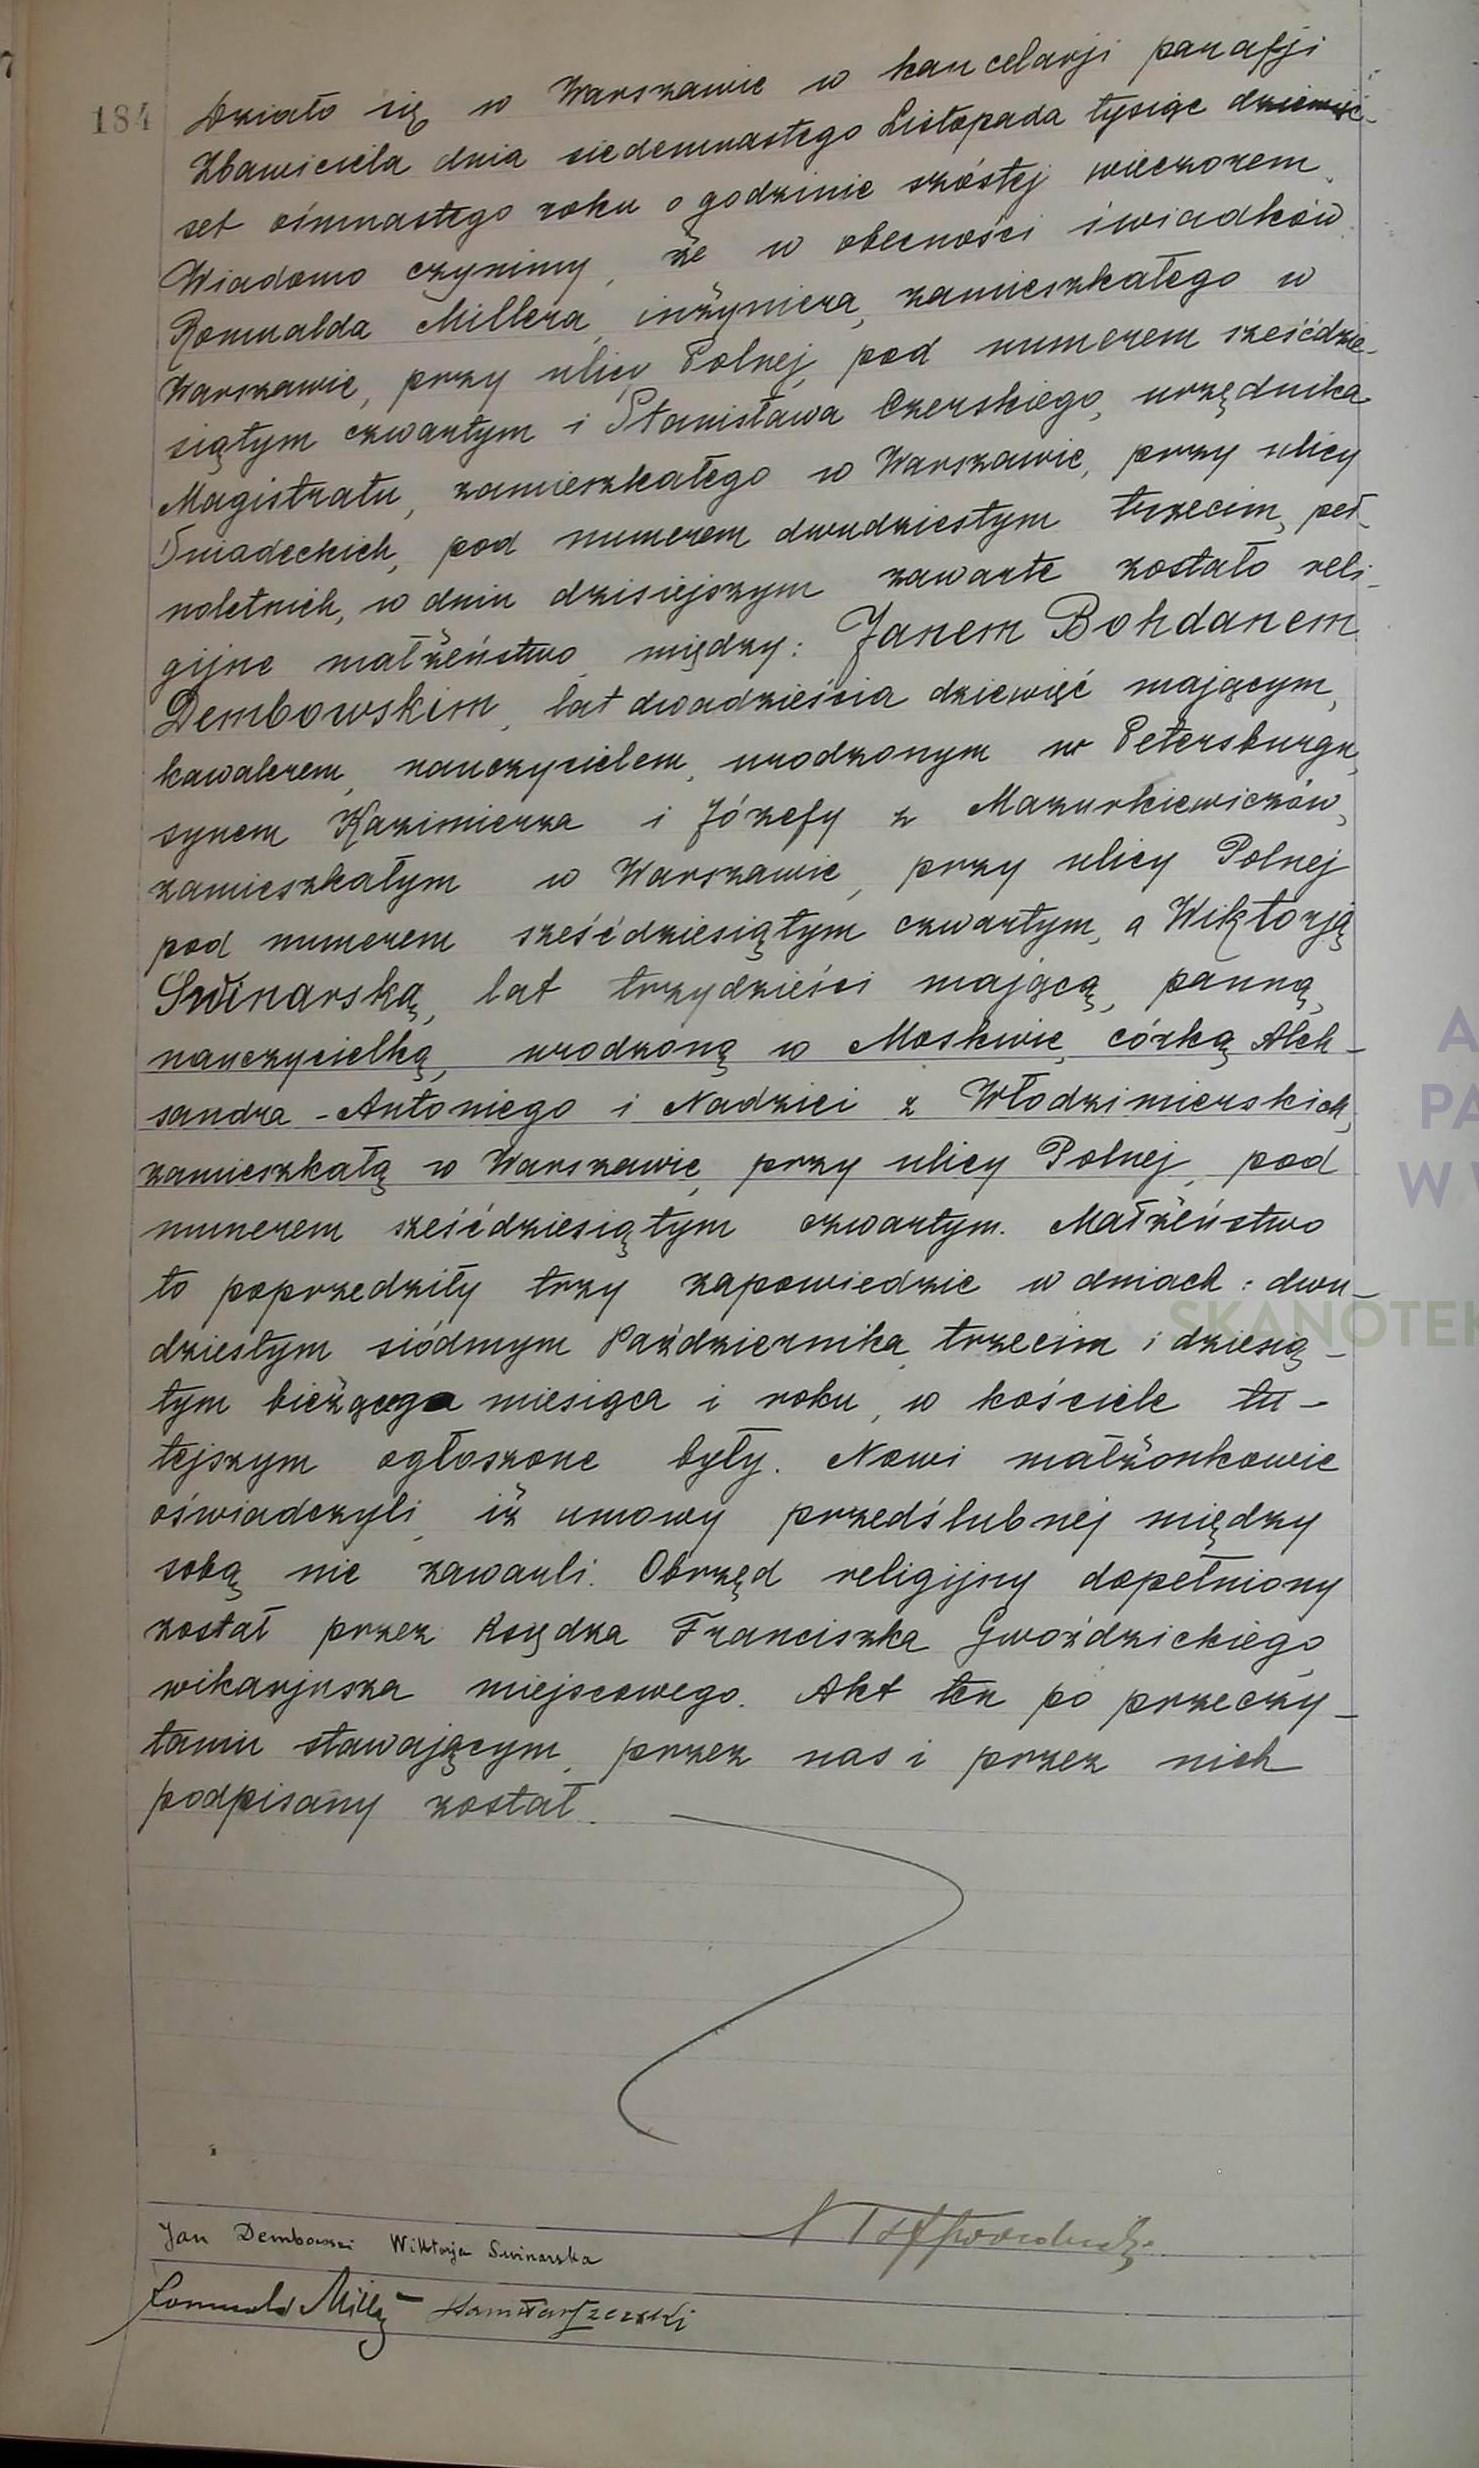 7
184 Działo się w Warszawie w kancelarji parafji
Zbawiciela dnia siedemnastego Listopada tysiąc dziewięć-
set ośmnastego roku o godzinie szóstej wieczorem.
Wiadomo czynimy, że w obecności świadków
Romualda Millera, inżyniera, zamieszkałego w
Warszawie, przy ulicy Polnej, pod numerem sześćdzie-
siątym czwartym i Stanisława Czerskiego, urzędnika
Magistratu, zamieszkałego w Warszawie, przy ulicy
Śniadeckich, pod numerem dwudziestym trzecim, peł-
noletnich, w dniu dzisiejszym zawarte zostało reli-
gijne małżeństwo między: Janem Bohdanem
Dembowskim, lat dwadzieścia dziewięć mającym,
kawalerem, nauczycielem, urodzonym w Petersburgu,
synem Kazimierza i Józefy z Mazurkiewiczów,
zamieszkałym w Warszawie, przy ulicy Polnej
pod numerem sześćdziesiątym czwartym, a Wiktorją
Świnarską, lat trzydzieści mającą, panną,
nauczycielką, urodzoną w Moskwie, córką Alek-
sandra-Antoniego i Nadziei z Włodzimierskich,
zamieszkałą w Warszawie, przy ulicy Polnej, pod
numerem sześćdziesiątym czwartym. Małżeństwo
to poprzedziły trzy zapowiedzie w dniach: dwu-
dziestym siódmym Października, trzecim i dziesią-
tym bieżącego miesiąca i roku, w kościele tu-
tejszym ogłoszone były. Nowi małżonkowie
oświadczyli, iż umowy przedślubnej między
sobą nie zawarli. Obrzęd religijny dopełniony
został przez Księdza Franciszka Gwoździckiego
wikarjusza miejscowego. Akt ten po przeczy-
taniu stawającym, przez nas i przez nich
podpisany został.
Jan Dembowski Wiktorja Swinarska
Romuald Miller Stanisław Czerski
A
PA
W W
SKANOTE